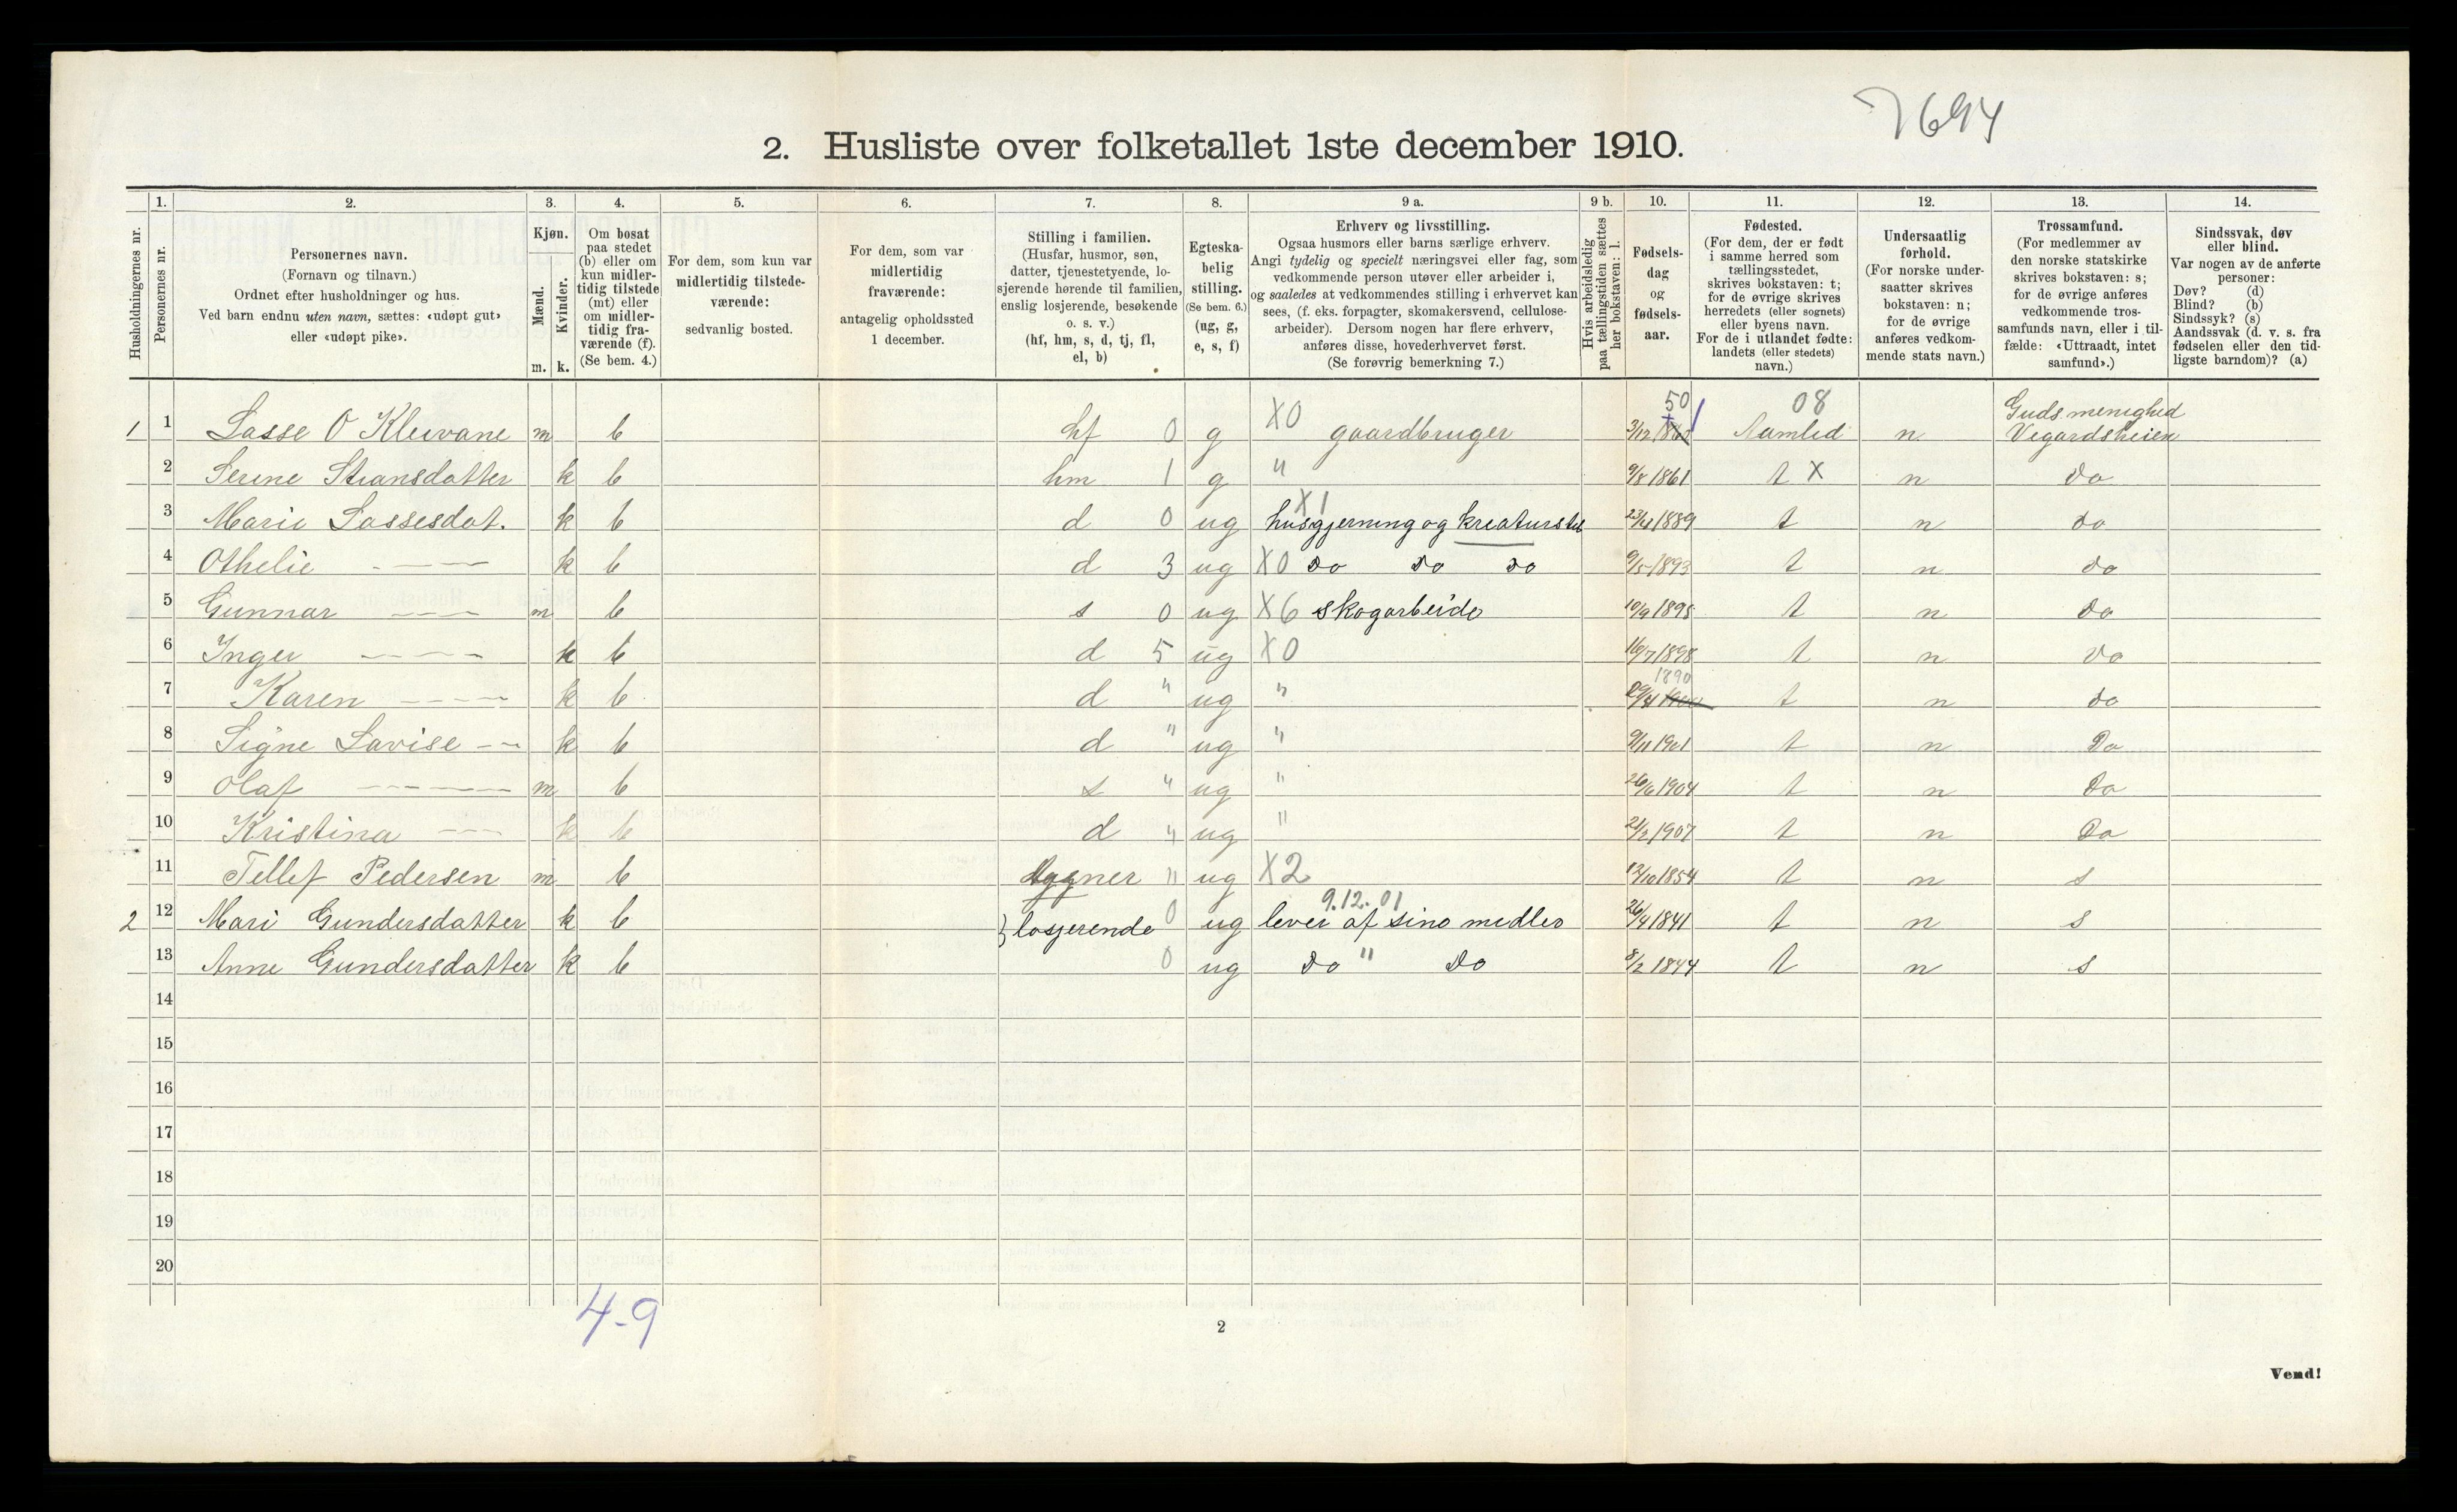 7694
2. Husliste over folketallet 1ste december 1910.
1. 2. 3. 4. 5. 6. 7. 8. 9 a. 9 b. 10. 11. 12. 13. 14.
Husholdningernes nr.
Personernes nr.
Personernes navn.
(Fornavn og tilnavn.)
Ordnet efter husholdninger og hus.
Ved barn endnu uten navn, sættes: «udøpt gut»
eller «udøpt pike».
Kjøn.
Mænd.
Kvinder.
m. k.
Om bosat
paa stedet
(b) eller om
kun midler-
tidig tilstede
(mt) eller
om midler-
tidig fra-
værende (f).
(Se bem. 4.)
For dem, som kun var
midlertidig tilstede-
værende:
sedvanlig bosted.
For dem, som var
midlertidig
fraværende:
antagelig opholdssted
1 december.
Stilling i familien.
(Husfar, husmor, søn,
datter, tjenestetyende, lo-
sjerende hørende til familien,
enslig losjerende, besøkende
o. s. v.)
(hf, hm, s, d, tj, fl,
el, b)
Egteska-
belig
stilling.
(Se bem. 6.)
(ug, g,
e, s, f)
Erhverv og livsstilling.
Ogsaa husmors eller barns særlige erhverv.
Angi tydelig og specielt næringsvei eller fag, som
vedkommende person utøver eller arbeider i,
og saaledes at vedkommendes stilling i erhvervet kan
sees, (f. eks. forpagter, skomakersvend, cellulose-
arbeider). Dersom nogen har flere erhverv,
anføres disse, hovederhvervet først.
(Se forøvrig bemerkning 7.)
Hvis arbeidsledig
paa tællingstiden sættes
her bokstaven: l.
Fødsels-
dag
og
fødsels-
aar.
Fødested.
(For dem, der er født
i samme herred som
tællingsstedet,
skrives bokstaven: t;
for de øvrige skrives
herredets (eller sognets)
eller byens navn.
For de i utlandet fødte:
landets (eller stedets)
navn.)
Undersaatlig
forhold.
(For norske under-
saatter skrives
bokstaven: n;
for de øvrige
anføres vedkom-
mende stats navn.)
Trossamfund.
(For medlemmer av
den norske statskirke
skrives bokstaven: s;
for de øvrige anføres
vedkommende tros-
samfunds navn, eller i til-
fælde: «Uttraadt, intet
samfund».)
Sindssvak, døv
eller blind.
Var nogen av de anførte
personer:
Døv? (d)
Blind? (b)
Sindssyk? (s)
Aandssvak (d. v. s. fra
fødselen eller den tid-
ligste barndom)? (a)
50 08 Guds menighed
1 1 Lasse O Kleivane m b hf 0 g X0 gaardbruger 3/12 Aamled n Vegardsheien
2 Serine Stiansdatter k b hm 1 g " 9/8 1861 t X n do
X1
3 Marie Lassesdat. k b d 0 ug husgjerning og kreaturstel 23/4 1889 t n do
4 Othelie - — — k b d 3 ug X0 do do do 9/5 1893 t n do
5 Gunnar — — m b s 0 ug X6 skogarbeide 10/9 1895 t n do
6 Inger — — — k b d 5 ug X0 16/7 1898 t n do
1890
7 Karen — — — k b d " ug " 29/4 1900 t n do
8 Signe Lavise — — k b d " ug " 9/11 1901 t n Do
9 Olaf — — — m b s " ug " 26/6 1904 t n Do
10 Kristina — — k b d " ug " 21/2 1907 t n Do
11 Tellef Pedersen m b " ug X2 12/10 1854 t n s
9.12.01
2 12 Mari Gundersdatter k b losjerende 0 ug lever af sine midler 26/4 1841 t n s
13 Anne Gundersdatter k b 0 ug Do " Do 8/2 1844 t n s
14
15
16
17
18
19
20
4-9
2
Vend!